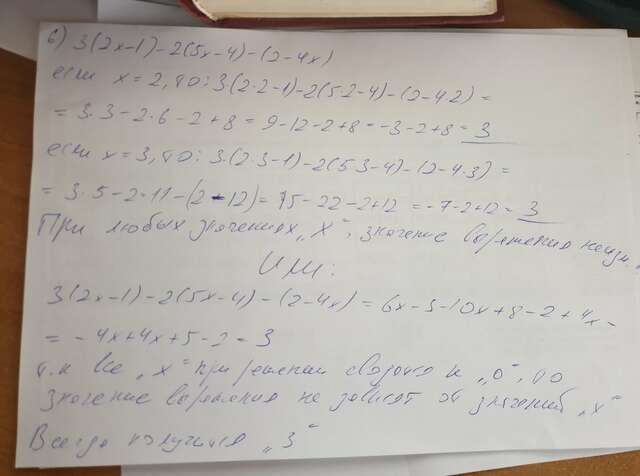 б) 3(2x-1)-2(5x-4)-(2-4x)
если x=2, то: 3(2·2-1)-2(5·2-4)-(2-4·2)=
=3·3-2·6-2+8=9-12-2+8=-3-2+8=3
если x=3, то: 3·(2·3-1)-2(5·3-4)-(2-4·3)=
=3·5-2·11-(2-12)=15-22-2+12=-7-2+12=3
При любых значениях „X“, значение выражения неизм.
Или:
3(2x-1)-2(5x-4)-(2-4x)=6x-3-10x+8-2+4x=
=-4x+4x+5-2=3
т.к все „x“ при решении сводятся к „0“, то
значение выражения не зависят от значений „x“
Всегда получится „3“